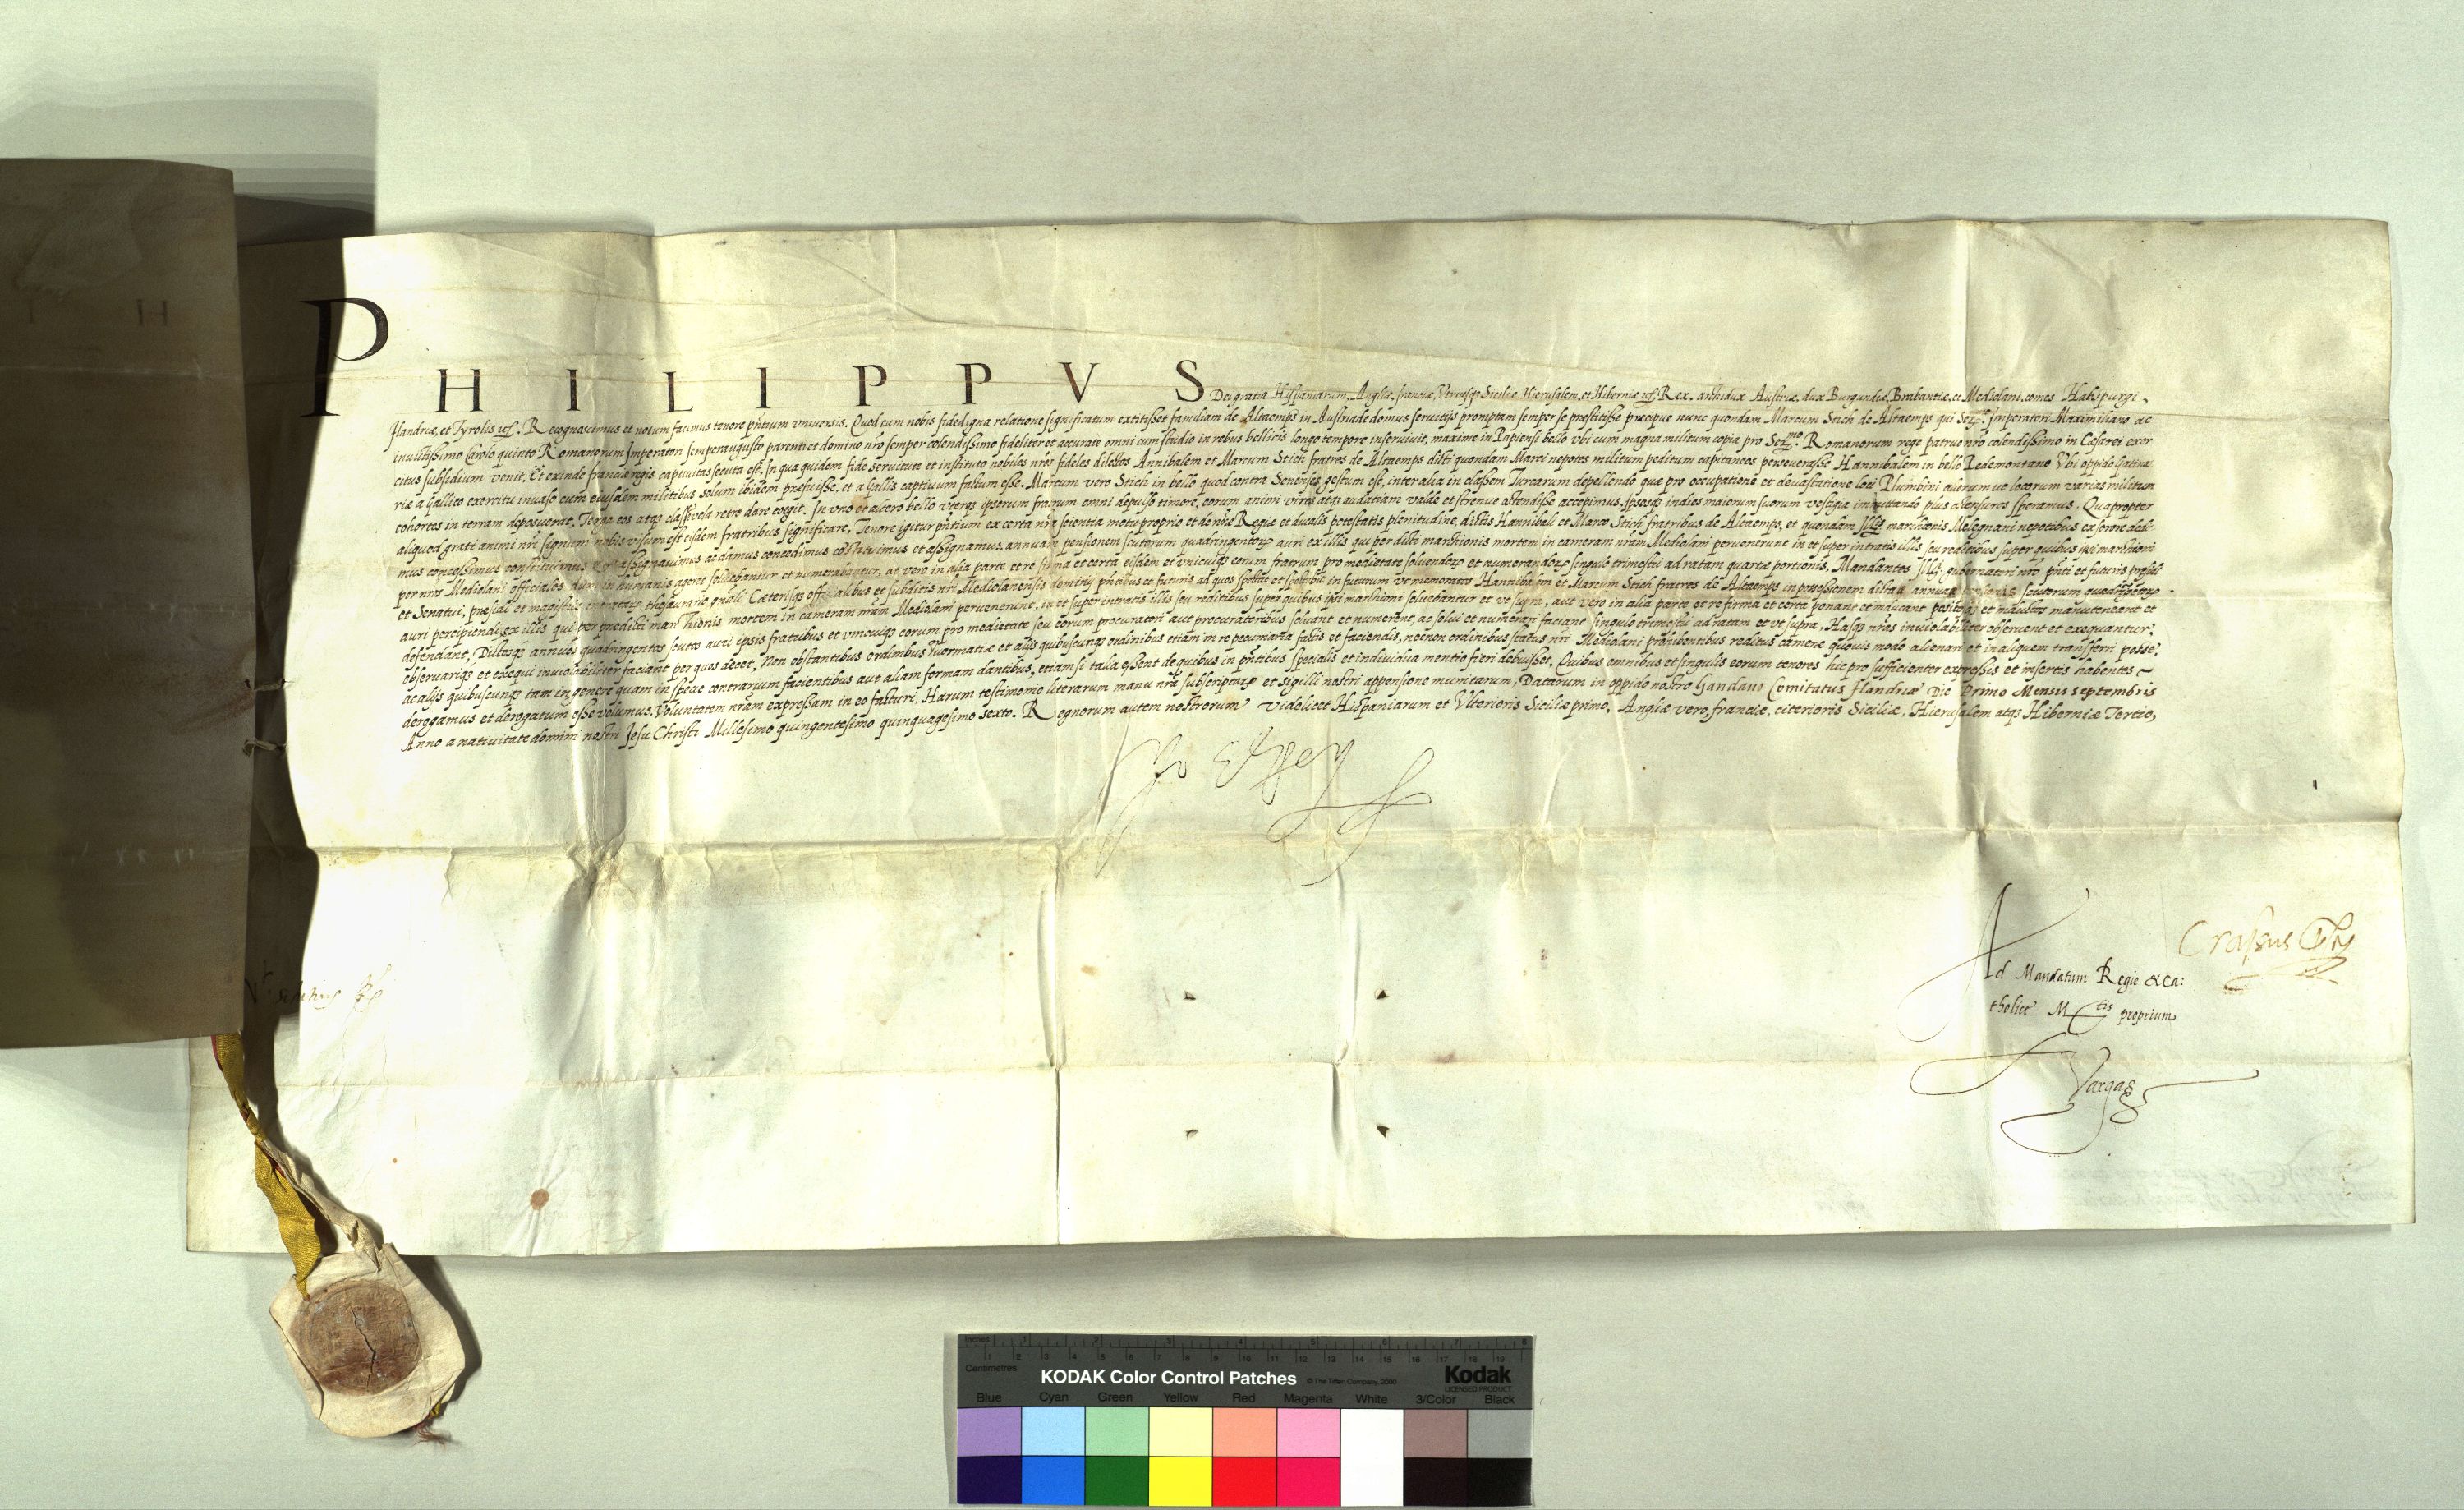 PHILIPPVS Dei gratia Hispaniarum, Angliæ, franciæ, Vtriusq; Siciliæ, Hierusalem, et Hiberniæ Rex, archidux Austriæ, dux Burgundiæ, Brabantiæ, et Mediolani, comes Habispurgi,
flandriæ, et Tyrolis Recognoscimus et notum facimus tenore pñtium vniuersis. Quod cum nobis fidedigna relatione significatum extitisset familiam de Altaemps in Austriadæ domus seruitijs promptam semper se præstitisse præcipue nunc quondam Marcum Stich de Altaemps qui Imperatori Maximiliano ac
inuictissimo Carolo quinto Romanorum Imperatori semper augusto parenti et domino nr̃o semper colendissimo fideliter et accurate omni cum studio in rebus bellicis longo tempore inseruiuit, maxime in Papiensi bello vbi cum magna militum copia pro Romanorum rege patruo nr̃o colendissimo in Cesarei exer
citus subsidium venit, et exinde franciæ regis captiuitas secuta est, In qua quidem fide seruitute et instituto nobiles nr̃os fideles dilectos Annibalem et Marcum Stich fratres de Altaemps dicti quondam Marci nepotes militum peditum capitaneos perseuerasse Hannibalem in bello Pedemontano Vbi oppido Gatina
riæ a Gallico exercitu inuaso cum eiusdem militibus solum ibidem præfuisse, et a Gallis captiuum factum esse. Marcum vero Stich in bello quod contra Senenses gestum est, inter alia in classem Turcarum depellendo quæ pro occupatione et deuastatione loci Plumbini aliorumue locorum varias militum
cohortes in terram deposuerat, Terga eos atq; classi vela retro dare coegit. In vno et altero bello vterq; ipsorum fratrum omni depulso timore, eorum animi vires atq; audatiam valde et strenue ostendisse accepimus. Ipsosq; indies maiorum suorum vestigia immitando plus ostensuros speramus. Quapropter
aliquod grati animi nr̃i signum nobis visum est eisdem fratribus significare, Tenore igitur pñtium ex certa nr̃a scientia motu proprio et de nr̃æ Regiæ et ducalis potestatis plenitudine, dictis Hannibali et Marco Stich fratribus de Altaemps, et quondam marchionis Melegnani nepotibus ex sorore dedi
mus concessimus constituimus assignauimus ac damus concedimus constituimus et assignamus, annuam pensionem scutorum quadringentorum auri ex illis qui per dicti marchionis mortem in cameram nr̃am Mediolani peruenerunt in et super intratis illis seu reditibus super quibus ipsi marchioni
per nr̃os Mediolani officiales dum in humanis ageret soluebantur et numerabantur, ac vero in alia parte et re firma et certa eisdem et vnicuiq; eorum fratrum pro medietate soluendorum et numerandorum singulo trimestri ad ratam quartæ portionis, Mandantes gubernatori nr̃o pñti et futuris
et Senatui, præsidi et magistris thesaurario Cæterisq; officialibus et subditis nr̃i Mediolanensis dominij pñtibus et futuris ad quos spectat et spectabit in futurum vt memoratos Hannibalem et Marcum Stich fratres de Altaemps in possessionem dictæ annuæ scutorum quadringentorum
auri percipiendorum ex illis qui per prædicti marchionis mortem in cameram nr̃am Mediolani peruenerunt, in et super intratis illis seu reditibus super quibus ipsi marchioni soluebantur et vt supra, aut vero in alia parte et re firma et certa ponant et inducant positos et inductos manuteneant et
defendant, Dictosq; annuos quadringentos scutos auri ipsis fratribus et vnicuiq; eorum pro medietate seu eorum procuratori aut procuratoribus soluant et numerent, ac solui et numerari faciant singulo trimestri ad ratam et vt supra, Hasq; nr̃as inuiolabiliter obseruent et exequantur,
obseruariq; et exequi inuiolabiliter faciant per quos decet, Non obstantibus ordinibus Vuormatiæ et alijs quibuscunq; ordinibus etiam in re pecuniaria factis et faciendis, necnon ordinibus status nr̃i Mediolani prohibentibus reditus cameræ quouis modo alienari et in aliquem transferri posse,
ac alijs quibuscunq; tam in genere quam in specie contrarium facientibus aut aliam formam dantibus, etiam si talia essent de quibus in pñtibus specialis et indiuidua mentio fieri debuisset, Quibus omnibus et singulis eorum tenores hic pro sufficienter expressis et insertis habentes
derogamus et derogatum esse volumus, Voluntatem nr̃am expressam in eo facturi. Harum testimonio literarum manu nr̃a subscriptarum et sigilli nostri appensione munitarum, Datarum in oppido nostro Gandauo Comitatus flandriæ Die Primo Mensis septembris
Anno a natiuitate domini nostri Jesu Christi Millesimo quingentesimo quinquagesimo sexto. Regnorum autem nostrorum videlicet Hispaniarum et Vlterioris Siciliæ primo, Angliæ vero, franciæ, citerioris Siciliæ, Hierusalem atq; Hiberniæ Tertio,
Yo el Rey
Crassus
Ad Mandatum Regie & Ca:
tholice Mtis proprium
Vargas
Inches
Centimetres
KODAK Color Control Patches
© The Tiffen Company, 2000
Kodak
LICENSED PRODUCT
Blue Cyan Green Yellow Red Magenta White 3/Color Black